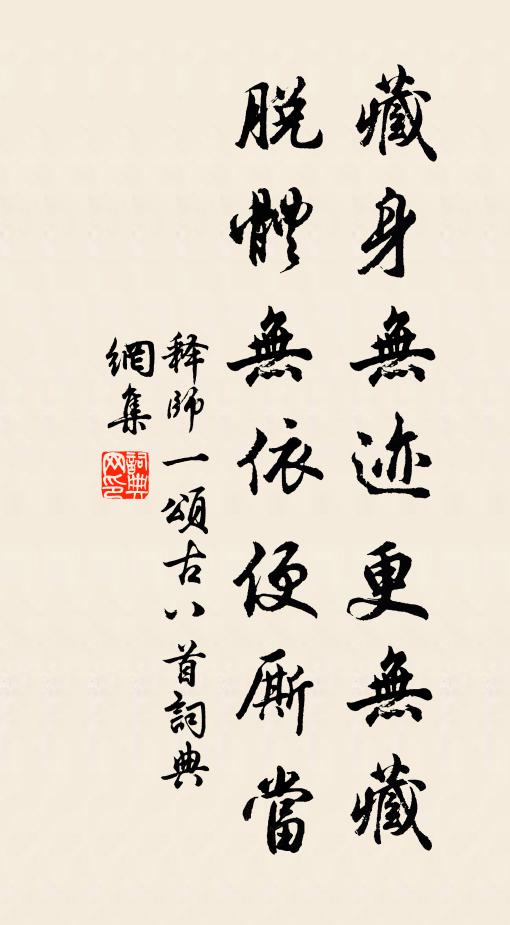 藏身無迹更無藏
脱體無依便厮當
釋師一頌古八首詞典
網集
詞典網印